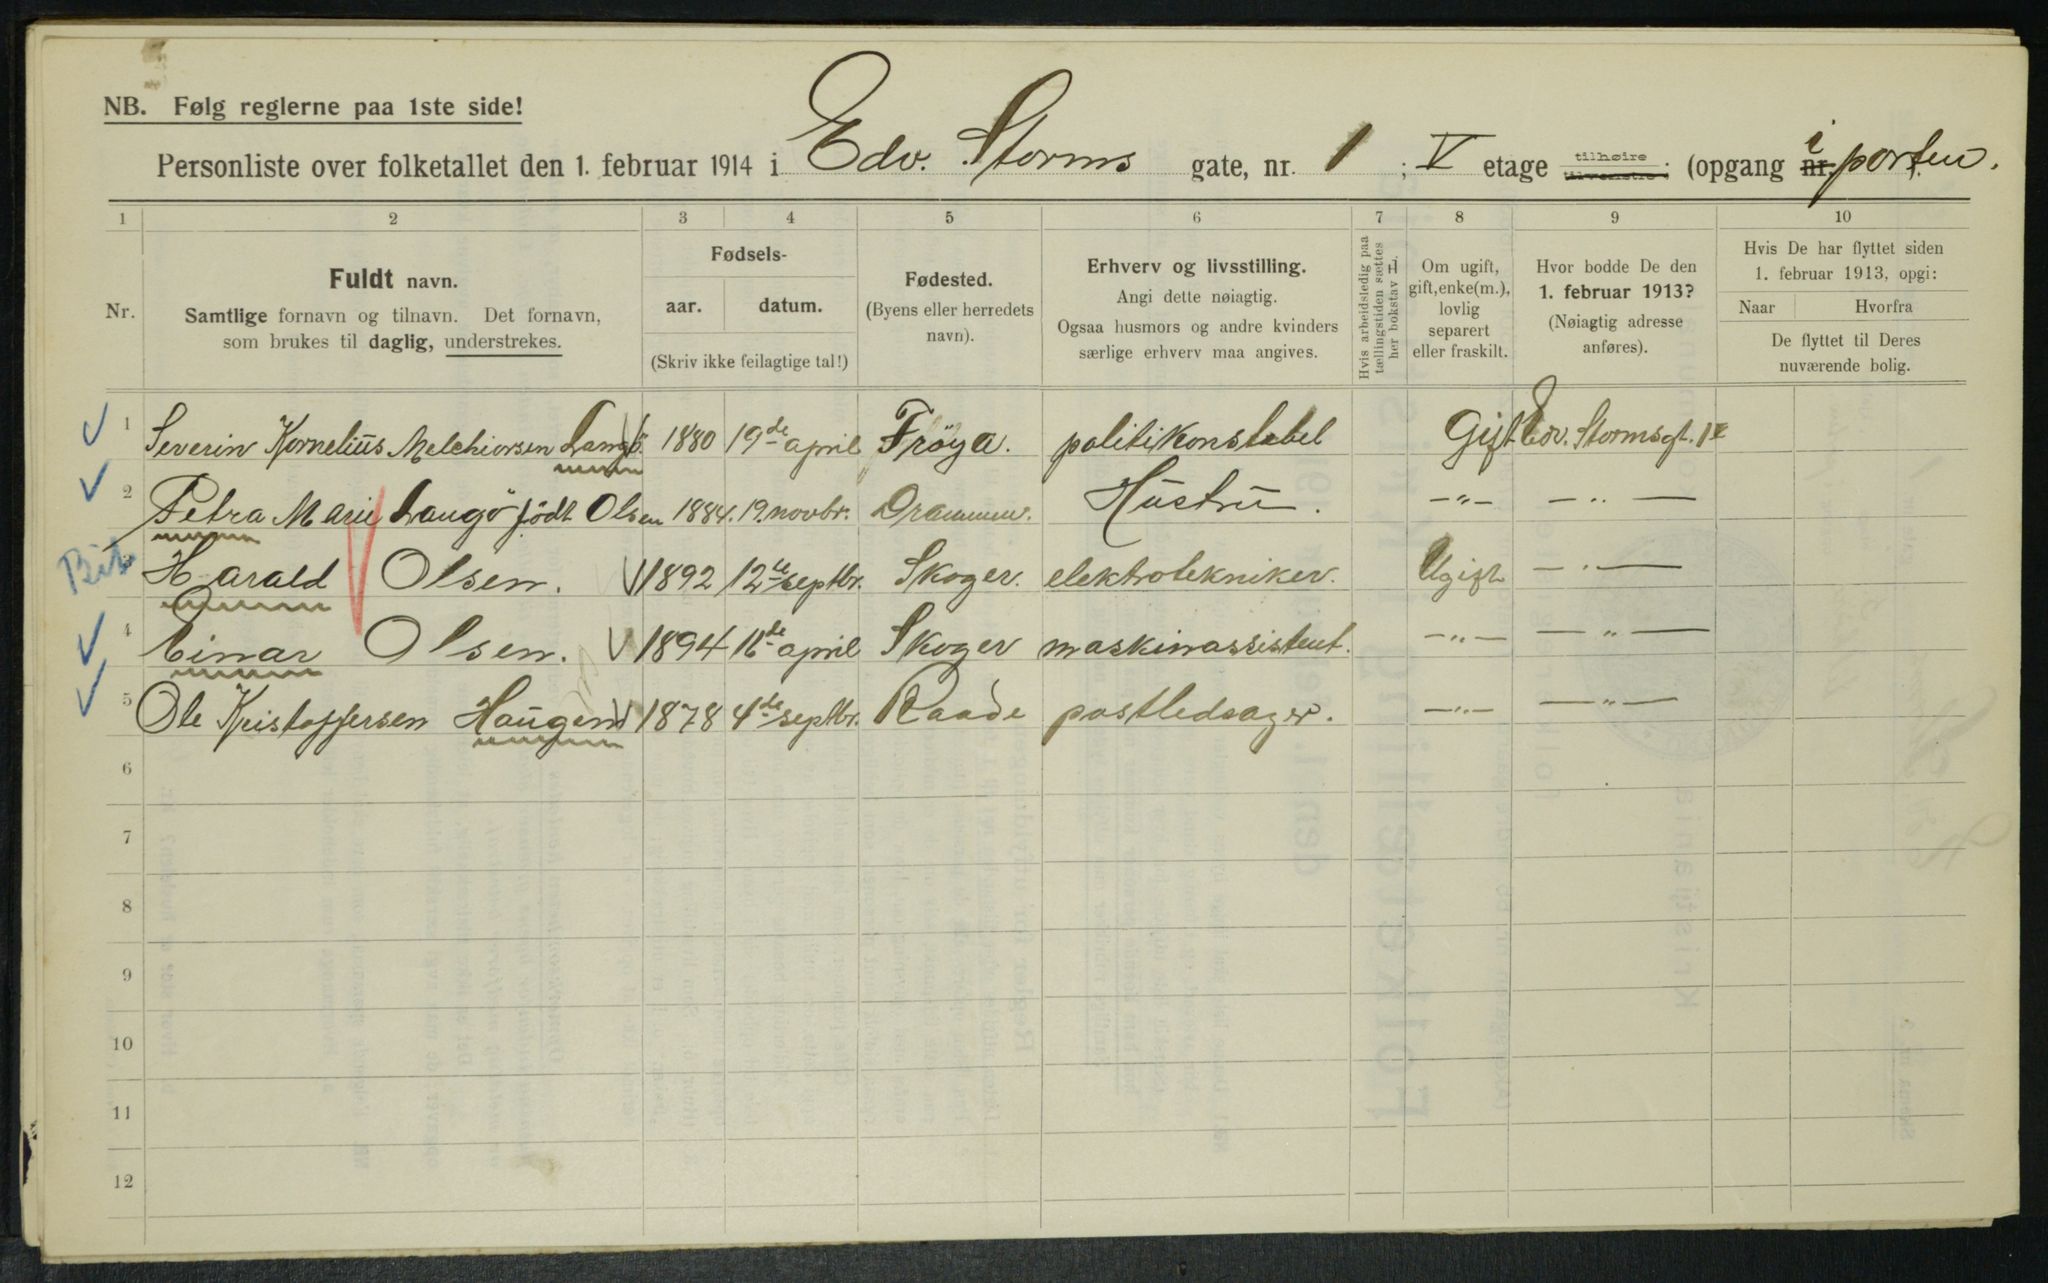 NB. Følg reglerne paa 1ste side!
Personliste over folketallet den 1. februar 1914 i Edv. Storms gate, nr. 1 ; V etage tilhøire tilvenstre ; (opgang nr. i porten.
1 2 3 4 5 6 7 8 9 10
Nr.
Fuldt navn.
Samtlige fornavn og tilnavn. Det fornavn,
som brukes til daglig, understrekes.
Fødsels-
aar. datum.
(Skriv ikke feilagtige tal!)
Fødested.
(Byens eller herredets
navn).
Erhverv og livsstilling.
Angi dette nøiagtig.
Ogsaa husmors og andre kvinders
særlige erhverv maa angives.
Hvis arbeidsledig paa
tællingstiden sættes
her bokstav L.
Om ugift,
gift, enke(m.),
lovlig
separert
eller fraskilt.
Hvor bodde De den
1. februar 1913?
(Nøiagtig adresse
anføres).
Hvis De har flyttet siden
1. februar 1913, opgi:
Naar Hvorfra
De flyttet til Deres
nuværende bolig.
1 Severin Kornelius Melchiorsen Langö 1880 19de april Fröya. politikonstabel Gift Edv. Stormsgt. 1
2 Petra Marie Langö född Olsen 1884. 19. novbr. Drammen. Hustru. —"— — " —
3 Harald Olsen. 1892 12te septbr. Skoger. elektrotekniker. Ugift — " —
4 Einar Olsen. 1894 16de april Skoger maskinassistent. —"— — " —
5 Ole Kristoffersen Haugen 1878 4de septbr. Raade postledsager. —"— — " —
6
7
8
9
10
11
12